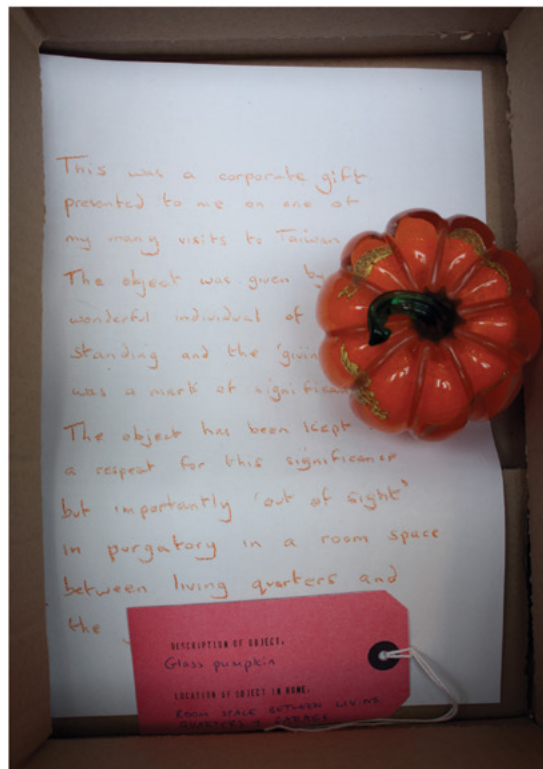 This was a corporate gift
presented to me on one of
my many visits to Taiwan
The object was given by
wonderful individual of
standing and the 'givin
was a mark of significan
The object has been kept
a respect for this significance
but importantly 'out of sight'
in purgatory in a room space
between living quarters and
the
DESCRIPTION OF OBJECT.
Glass pumpkin
LOCATION OF OBJECT IN HOME.
ROOM SPACE BETWEEN LIVING
QUARTERS & GARAGE